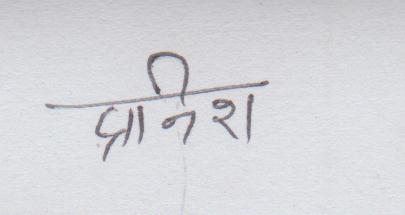 प्रानिश